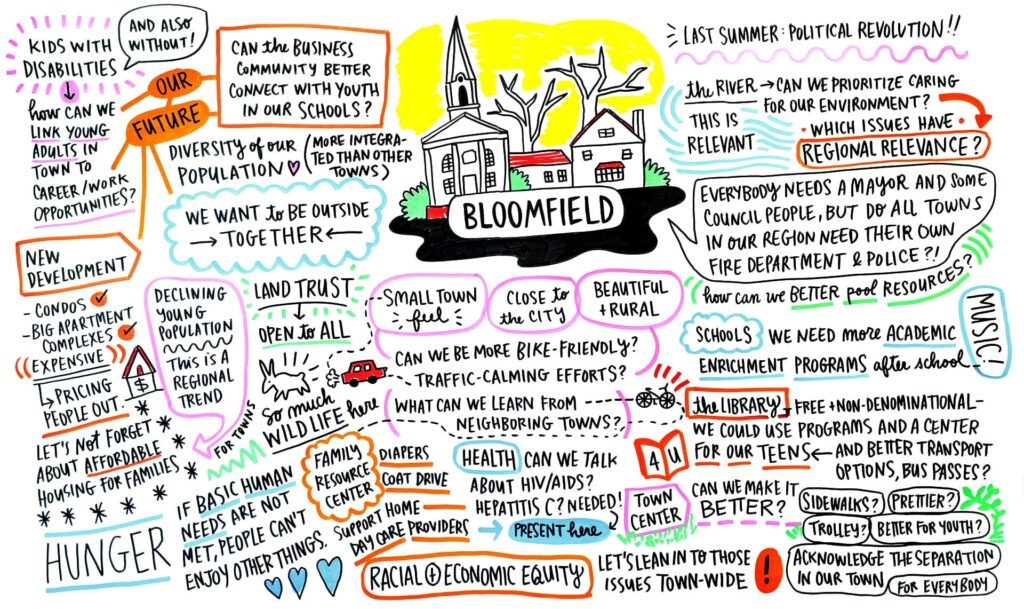 KIDS WITH
DISABILITIES
AND ALSO
WITHOUT!
how CAN WE
LINK YOUNG
ADULTS IN
TOWN TO
CAREER/WORK
OPPORTUNITIES?
OUR
FUTURE
CAN the BUSINESS
COMMUNITY BETTER
CONNECT WITH YOUTH
IN OUR SCHOOLS?
DIVERSITY of OUR
POPULATION
(MORE INTEGRA-
TED THAN OTHER
TOWNS)
WE WANT to BE OUTSIDE
→ TOGETHER ←
BLOOMFIELD
LAST SUMMER: POLITICAL REVOLUTION!!
the RIVER → CAN WE PRIORITIZE CARING
FOR OUR ENVIRONMENT?
THIS IS
RELEVANT
• WHICH ISSUES HAVE
REGIONAL RELEVANCE?
EVERYBODY NEEDS A MAYOR AND SOME
COUNCIL PEOPLE, BUT DO ALL TOWNS
IN OUR REGION NEED THEIR OWN
FIRE DEPARTMENT & POLICE?!
how can we BETTER pool RESOURCES?
NEW
DEVELOPMENT
- CONDOS
- BIG APARTMENT
COMPLEXES
((EXPENSIVE))
↳ PRICING
PEOPLE OUT.
$
LET'S NOT FORGET
ABOUT AFFORDABLE
HOUSING FOR FAMILIES
HUNGER
DECLINING
YOUNG
POPULATION
This IS A
REGIONAL
TREND
LAND TRUST
OPEN to ALL
So much
WILD LIFE here
FOR TWNS
IF BASIC HUMAN
NEEDS ARE NOT
MET, PEOPLE CAN'T
ENJOY OTHER THINGS.
SMALL TOWN
feel
CLOSE to
the CITY
BEAUTIFUL
+ RURAL
CAN WE BE MORE BIKE-FRIENDLY?
TRAFFIC-CALMING EFFORTS?
WHAT CAN WE LEARN FROM
NEIGHBORING TOWNS?
FAMILY
RESOURCE
CENTER
DIAPERS
COAT DRIVE
SUPPORT HOME
DAY CARE PROVIDERS
HEALTH CAN WE TALK
ABOUT HIV/AIDS?
HEPATITIS C? NEEDED!
→ PRESENT here
RACIAL + ECONOMIC EQUITY
LET'S LEAN IN TO THOSE
ISSUES TOWN-WIDE
!
SCHOOLS WE NEED more ACADEMIC
ENRICHMENT PROGRAMS after school
MUSIC!
the LIBRARY → FREE + NON-DENOMINATIONAL—
WE COULD USE PROGRAMS AND A CENTER
FOR OUR TEENS ← AND BETTER TRANSPORT
OPTIONS, BUS PASSES?
4 U
TOWN
CENTER
CAN WE MAKE IT
BETTER?
SIDEWALKS?
PRETTIER?
TROLLEY?
BETTER FOR YOUTH?
ACKNOWLEDGE THE SEPARATION
IN OUR TOWN
FOR EVERYBODY